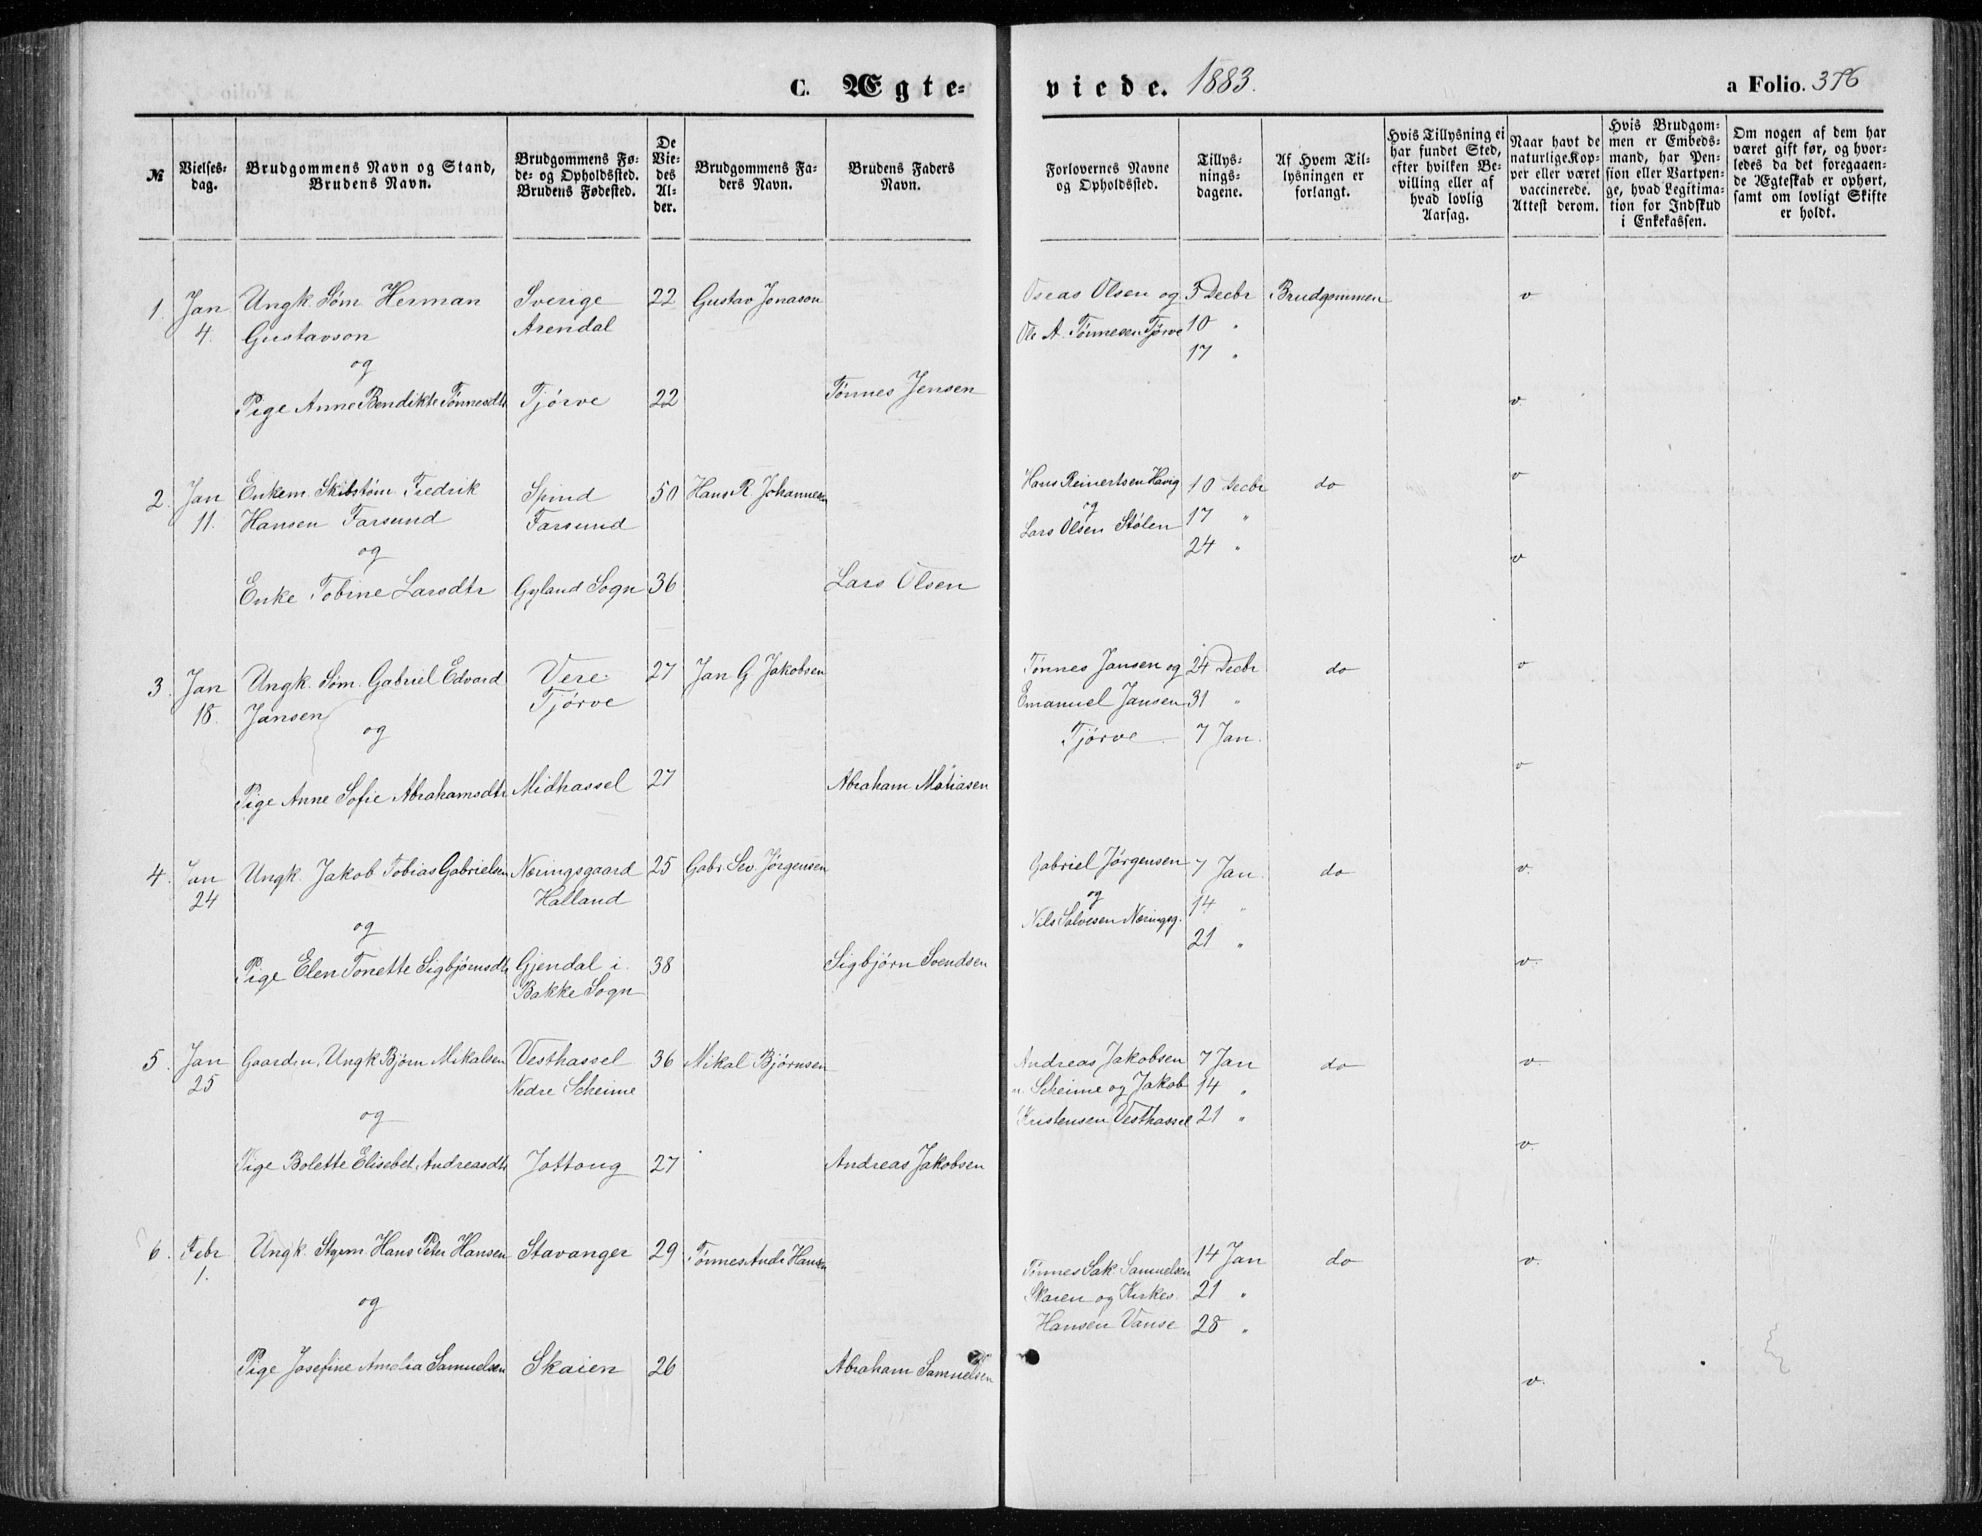 C. Ægte-
viede. 1883.
a Folio. 376
№
Vielses-
dag.
Brudgommens Navn og Stand,
Brudens Navn.
Brudgommens Fø-
de- og Opholdssted.
Brudens Fødested.
De
Vie-
des
Al-
der.
Brudgommens Fa-
ders Navn.
Brudens Faders
Navn.
Forlovernes Navne
og Opholdssted.
Tillys-
nings-
dagene.
Af Hvem Til-
lysningen er
forlangt.
Hvis Tillysning ei
har fundet Sted,
efter hvilken Be-
villing eller af
hvad lovlig
Aarsag.
Naar havt de
naturlige Kop-
per eller været
vaccinerede.
Attest derom.
Hvis Brudgom-
men er Embeds-
mand, har Pen-
sion eller Vartpen-
ge, hvad Legitima-
tion for Indskud
i Enkekassen.
Om nogen af dem har
været gift før, og hvor-
ledes da det foregaaen-
de Ægteskab er ophørt,
samt om lovligt Skifte
er holdt.
1. Jan Ungk. Søm. Herman Sverige 22 Gustav Jonason Oseas Olsen og 3 Decbr Brudgommen v
4. Gustavson Arendal Ole A. Tønnesen Tjørve 10 "
og 17 "
Pige Anne Bendikte Tønnesdtr Tjørve 22 Tønnes Jensen v
2. Jan Enkem. Skibstøm. Fredrik Spind 50 Hans R. Johannesen Hans Reinertsen Havig 10 Decbr do v
11. Hansen Farsund Farsund og 17 "
og Lars Olsen Stølen 24 "
Enke Tobine Larsdtr Gyland Sogn 36 Lars Olsen v
3. Jan Ungk. Søm. Gabriel Edvard Vere 27 Jan G Jakobsen Tønnes Jansen og 24 Decbr do v
18. Jansen Tjørve Emanuel Jansen 31 "
og Tjørve 7 Jan.
Pige Anne Sofie Abrahamsdtr Midhassel 27 Abraham Matiasen v
4. Jan Ungk. Jakob Tobias Gabrielsen Næringsgaard 25 Gabr. Sev. Jørgensen Gabriel Jørgensen 7 Jan. do v.
24 Halland og 14 "
og Nils Salvesen Næringsg. 21 "
Pige Elen Tonette Sigbjørnsdtr Gjendal i 38 Sigbjørn Svendsen v.
Bakke Sogn
5. Jan Gaardm. Ungk Bjørn Mikalsen Vesthassel 36 Mikal Bjørnsen Andreas Jakobsen 7 Jan do v.
25 Nedre Scheime n. Scheime og Jakob 14 "
og Kristensen Vesthassel 21 "
Pige Bolette Elisebet Andreasdtr Jottong 27 Andreas Jakobsen v.
6. Febr Ungk. Stgem. Hans Peter Hansen Stavanger 29 Tønnes Andr Hansen 14 Jan do v.
1. Tønnes Sak. Samuelsen
og Skaien og Kirkes. 21 "
Hansen Vanse 28 "
Pige Josefine Amelia Samuelsen Skaien 26 Abraham Samuelsen v.